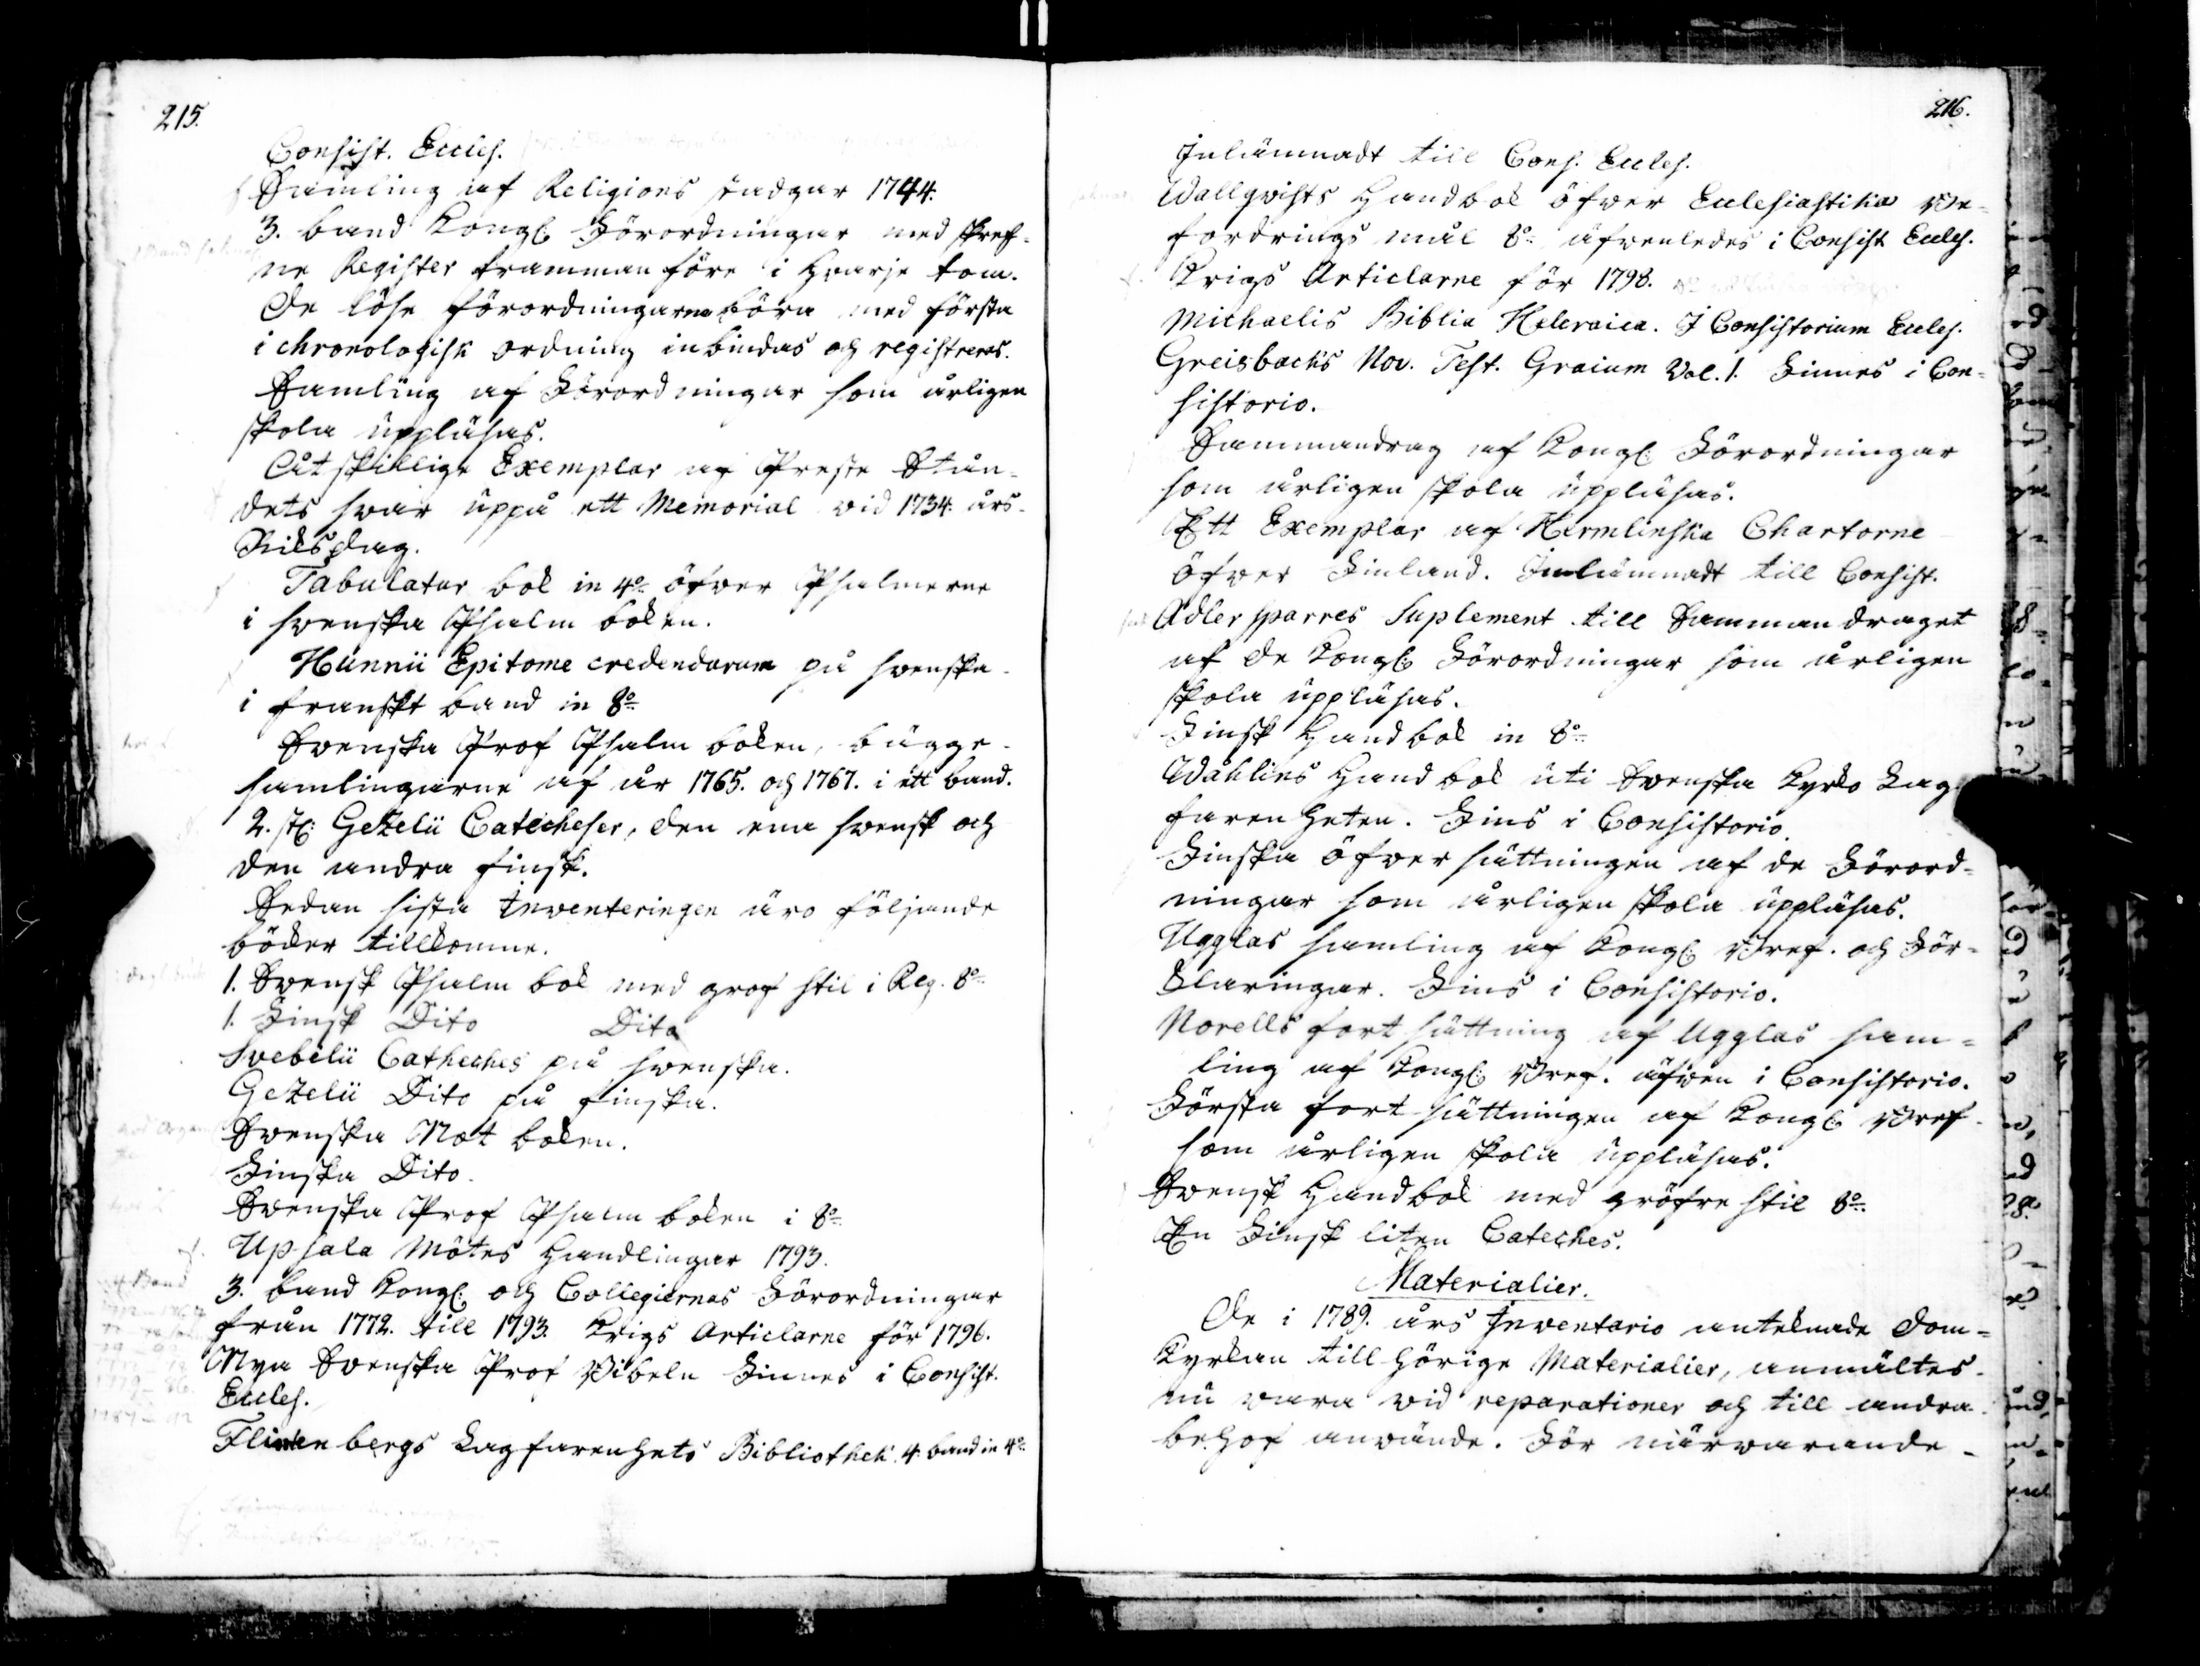 215.
Consist. Eccles.
Samling af Religions stadgar 1744.
3. band Kongl: Förordningar med skref-
ne Register framman före i hvarje tom.
De löse förordningarna böra med första
i chronologisk ordning inbindas och registreras.
Samling af Förordningar som årligen
skola uppläsas.
Åtskillige Exemplar af Preste Stån-
dets svar uppå ett Memorial vid 1734. års
Riksdag.
Tabulatur bok in 4:o öfver Psalmerne
i svenska Psalm boken.
Hunnii Epitome credendorum på svenska
i franskt band in 8:o
Svenska Prof Psalm boken, bägge
samlingarne af år 1765. och 1767. i ett band.
2. st: Gezelii Catecheser, den ena svensk och
den andra finsk.
Sedan sista Inventeringen äro följande
böcker tillkomne.
1. Svensk Psalm bok med grof stil i Reg. 8:o
1. Finsk Dito Dito
Svebelii Catheches på svenska.
Gezelii Dito på finska.
Svenska Not boken.
Finska Dito.
Svenska Prof Psalm boken i 8:o
Upsala Mötes Handlingar 1793.
3. band Kongl: och Collegiernas Förordningar
från 1772. till 1793. Krigs Articlarne för 1796.
Nya Svenska Prof Bibeln Finnes i Consist.
Eccles.
Flintenbergs Lagfarenhets Bibliothek 4. band in 4:o
216.
Inlämnadt till Cons. Eccles.
Wallqvists Handbok öfver Ecclesiastika Be-
fordrings mål 8:o äfvenledes i Consist Eccles.
Krigs Articlarne för 1798.
Michaelis Biblia Hebraica. I Consistorium Eccles.
Greisbachs Nov. Test. Græcum Vol. 1. Finnes i Con-
sistorio.
Sammandrag af Kongl: Förordningar
som årligen skola uppläsas.
Ett Exemplar af Hermlinska Chartorne
öfver Finland. Inlämnadt till Consist.
Adlersparres Suplement till Sammandraget
af de Kongl: Förordningar som årligen
skola uppläsas.
Finsk Handbok in 8:o
Wåhlins Handbok uti Svenska Kyrko Lag
farenheten. Fins i Consistorio.
Finska öfversättningen af de Förord-
ningar som årligen skola uppläsas.
Ugglas samling af Kongl: Bref. och För-
klaringar. Fins i Consistorio.
Norells fortsättning af Ugglas sam-
ling af Kongl: Bref. äfven i Consistorio.
Första fortsättningen af Kongl: Bref
som årligen skola uppläsas.
Svensk Handbok med gröfre stil 8:o
En Finsk liten Cateches.
Materialier.
De i 1789. års Inventario antecknade Dom-
kyrkan tillhörige Materialier, anmältes
nu vara vid reparationer och till andra
behof använde. För närvarande